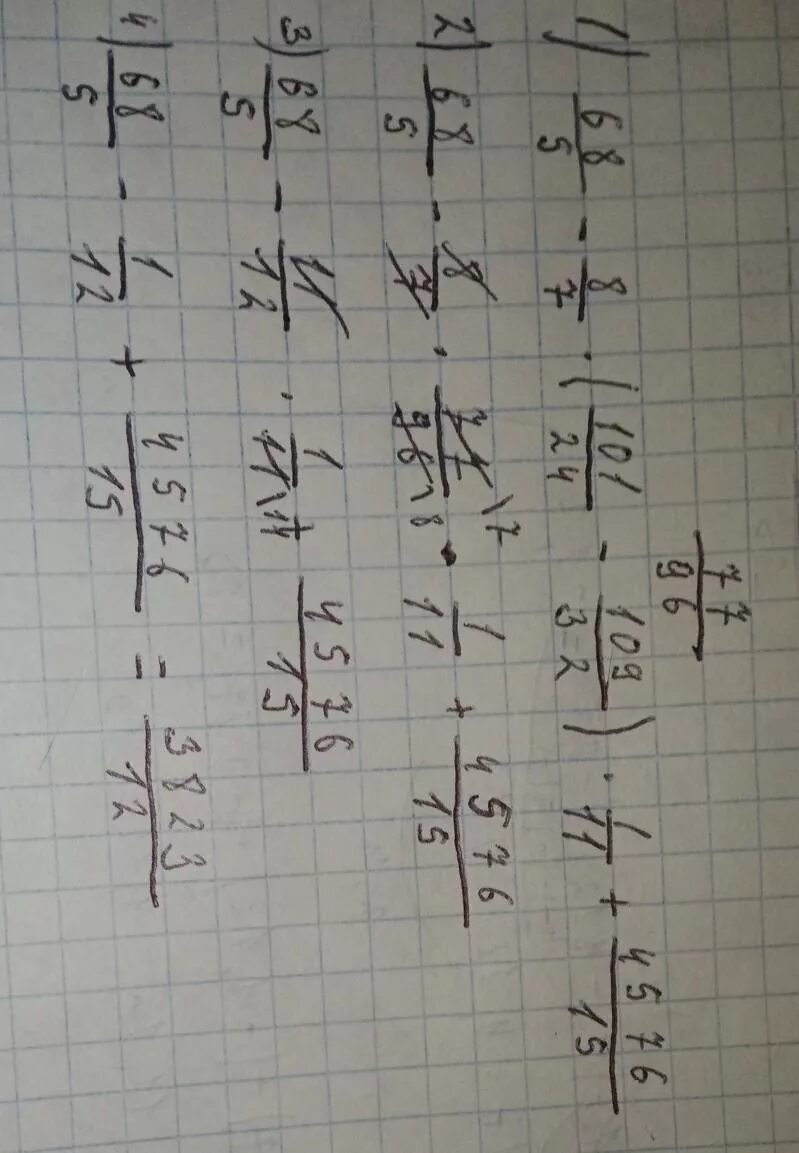 77/96
1) 68/5 - 8/7 · (101/24 - 109/32) · 1/11 + 4576/15
2) 68/5 - 8/7 · 77\7/96\8 · 1/11 + 4576/15
3) 68/5 - 11/12 · 1/11\1 4576/15
4) 68/5 - 1/12 + 4576/15 = 3823/12